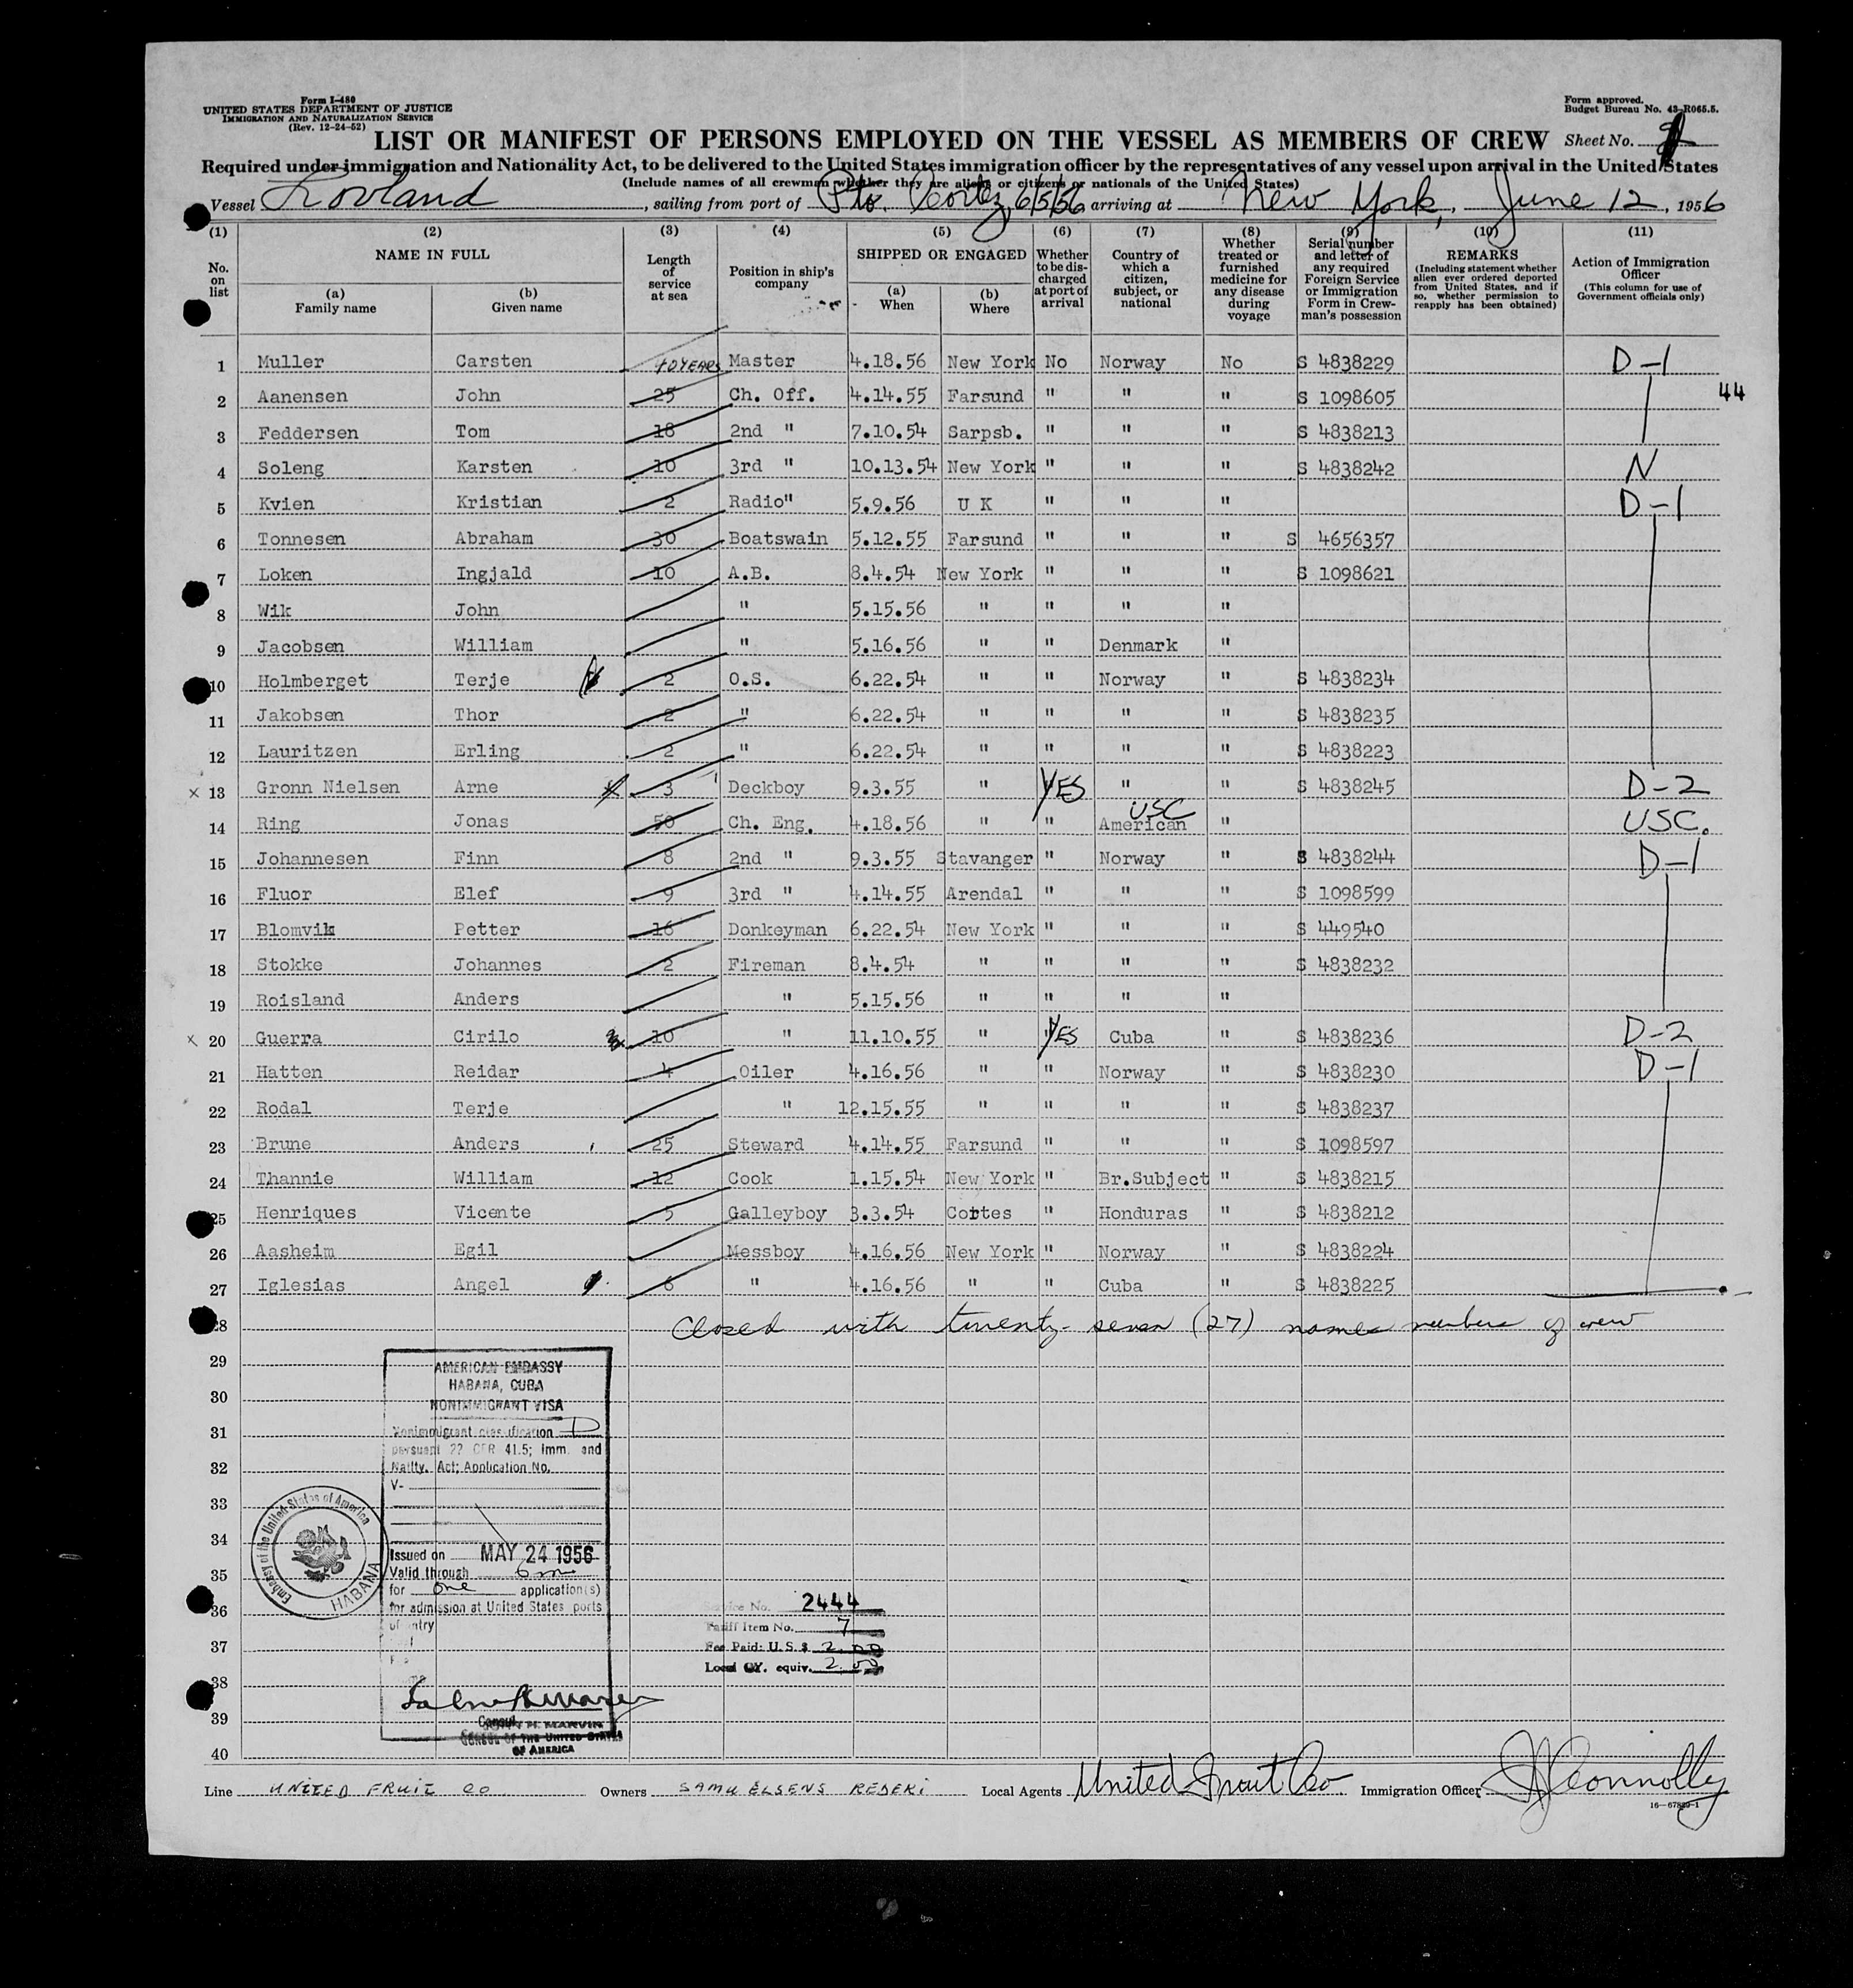 Form I-480
UNITED STATES DEPARTMENT OF JUSTICE
IMMIGRATION AND NATURALIZATION SERVICE
(Rev. 12-24-52)
Form approved.
Budget Bureau No. 43-R065.5.
LIST OR MANIFEST OF PERSONS EMPLOYED ON THE VESSEL AS MEMBERS OF CREW Sheet No.
Required under immigration and Nationality Act, to be delivered to the United States immigration officer by the representatives of any vessel upon arrival in the United States
(Include names of all crewman whether they are aliens or citizens or nationals of the United States)
Vessel Lovland, sailing from port of Pto. Cortez, 6/5/56 arriving at New York, June 12, 1956
(1) (2) (3) (4) (5) (6) (7) (8) (9) (10) (11)
No. on list
NAME IN FULL
(a) Family name
(b) Given name
Length of service at sea
Position in ship's company
SHIPPED OR ENGAGED
(a) When
(b) Where
Whether to be discharged at port of arrival
Country of which a citizen, subject, or national
Whether treated or furnished medicine for any disease during voyage
Serial number and letter of any required Foreign Service or Immigration Form in Crewman's possession
REMARKS
(Including statement whether alien ever ordered deported from United States, and if so, whether permission to reapply has been obtained)
Action of Immigration Officer
(This column for use of Government officials only)
1 Muller Carsten 40 YEARS Master 4.18.56 New York No Norway No S 4838229 D-1
2 Aanensen John 25 Ch. Off. 4.14.55 Farsund " " " S 1098605 44
3 Feddersen Tom 18 2nd " 7.10.54 Sarpsb. " " " S 4838213
4 Soleng Karsten 10 3rd " 10.13.54 New York " " " S 4838242 N
5 Kvien Kristian 2 Radio" 5.9.56 U K " " " D-1
6 Tonnesen Abraham 30 Boatswain 5.12.55 Farsund " " " S 4656357
7 Loken Ingjald 10 A.B. 8.4.54 New York " " " S 1098621
8 Wik John " 5.15.56 " " " "
9 Jacobsen William " 5.16.56 " " Denmark "
10 Holmberget Terje 2 O.S. 6.22.54 " " Norway " S 4838234
11 Jakobsen Thor 2 " 6.22.54 " " " " S 4838235
12 Lauritzen Erling 2 " 6.22.54 " " " " S 4838223
x 13 Gronn Nielsen Arne 3 Deckboy 9.3.55 " YES " " S 4838245 D-2
14 Ring Jonas 50 Ch. Eng. 4.18.56 " " American USC " USC.
15 Johannesen Finn 8 2nd " 9.3.55 Stavanger " Norway " S 4838244 D-1
16 Fluor Elef 9 3rd " 4.14.55 Arendal " " " S 1098599
17 Blomvik Petter 16 Donkeyman 6.22.54 New York " " " S 449540
18 Stokke Johannes 2 Fireman 8.4.54 " " " " S 4838232
19 Roisland Anders " 5.15.56 " " " "
x 20 Guerra Cirilo 10 " 11.10.55 " YES Cuba " S 4838236 D-2
21 Hatten Reidar 4 Oiler 4.16.56 " " Norway " S 4838230 D-1
22 Rodal Terje " 12.15.55 " " " " S 4838237
23 Brune Anders 25 Steward 4.14.55 Farsund " " " S 1098597
24 Thannie William 12 Cook 1.15.54 New York " Br.Subject " S 4838215
25 Henriques Vicente 5 Galleyboy 3.3.54 Cortes " Honduras " S 4838212
26 Aasheim Egil Messboy 4.16.56 New York " Norway " S 4838224
27 Iglesias Angel 6 " 4.16.56 " " Cuba " S 4838225
28 Closed with twenty-seven (27) names members of crew
29
30
31
32
33
34
35
36
37
38
39
40
AMERICAN EMBASSY
HABANA, CUBA
NONIMMIGRANT VISA
Nonimmigrant classification D
pursuant 22 CFR 41.5; Imm. and
Natlty. Act; Application No.
V-
Issued on MAY 24 1956
Valid through 6 mo
for one application(s)
for admission at United States ports
of entry
Consul
MARVIN
CONSUL OF THE UNITED STATES
OF AMERICA
Embassy of the United States of America
HABANA
Service No. 2444
Tariff Item No. 7
Fee Paid: U.S. $ 2.00
Local CY. equiv. 2.00
Line UNITED FRUIT CO Owners SAMUELSENS REDERI Local Agents United Fruit Co Immigration Officer JJ Connolly